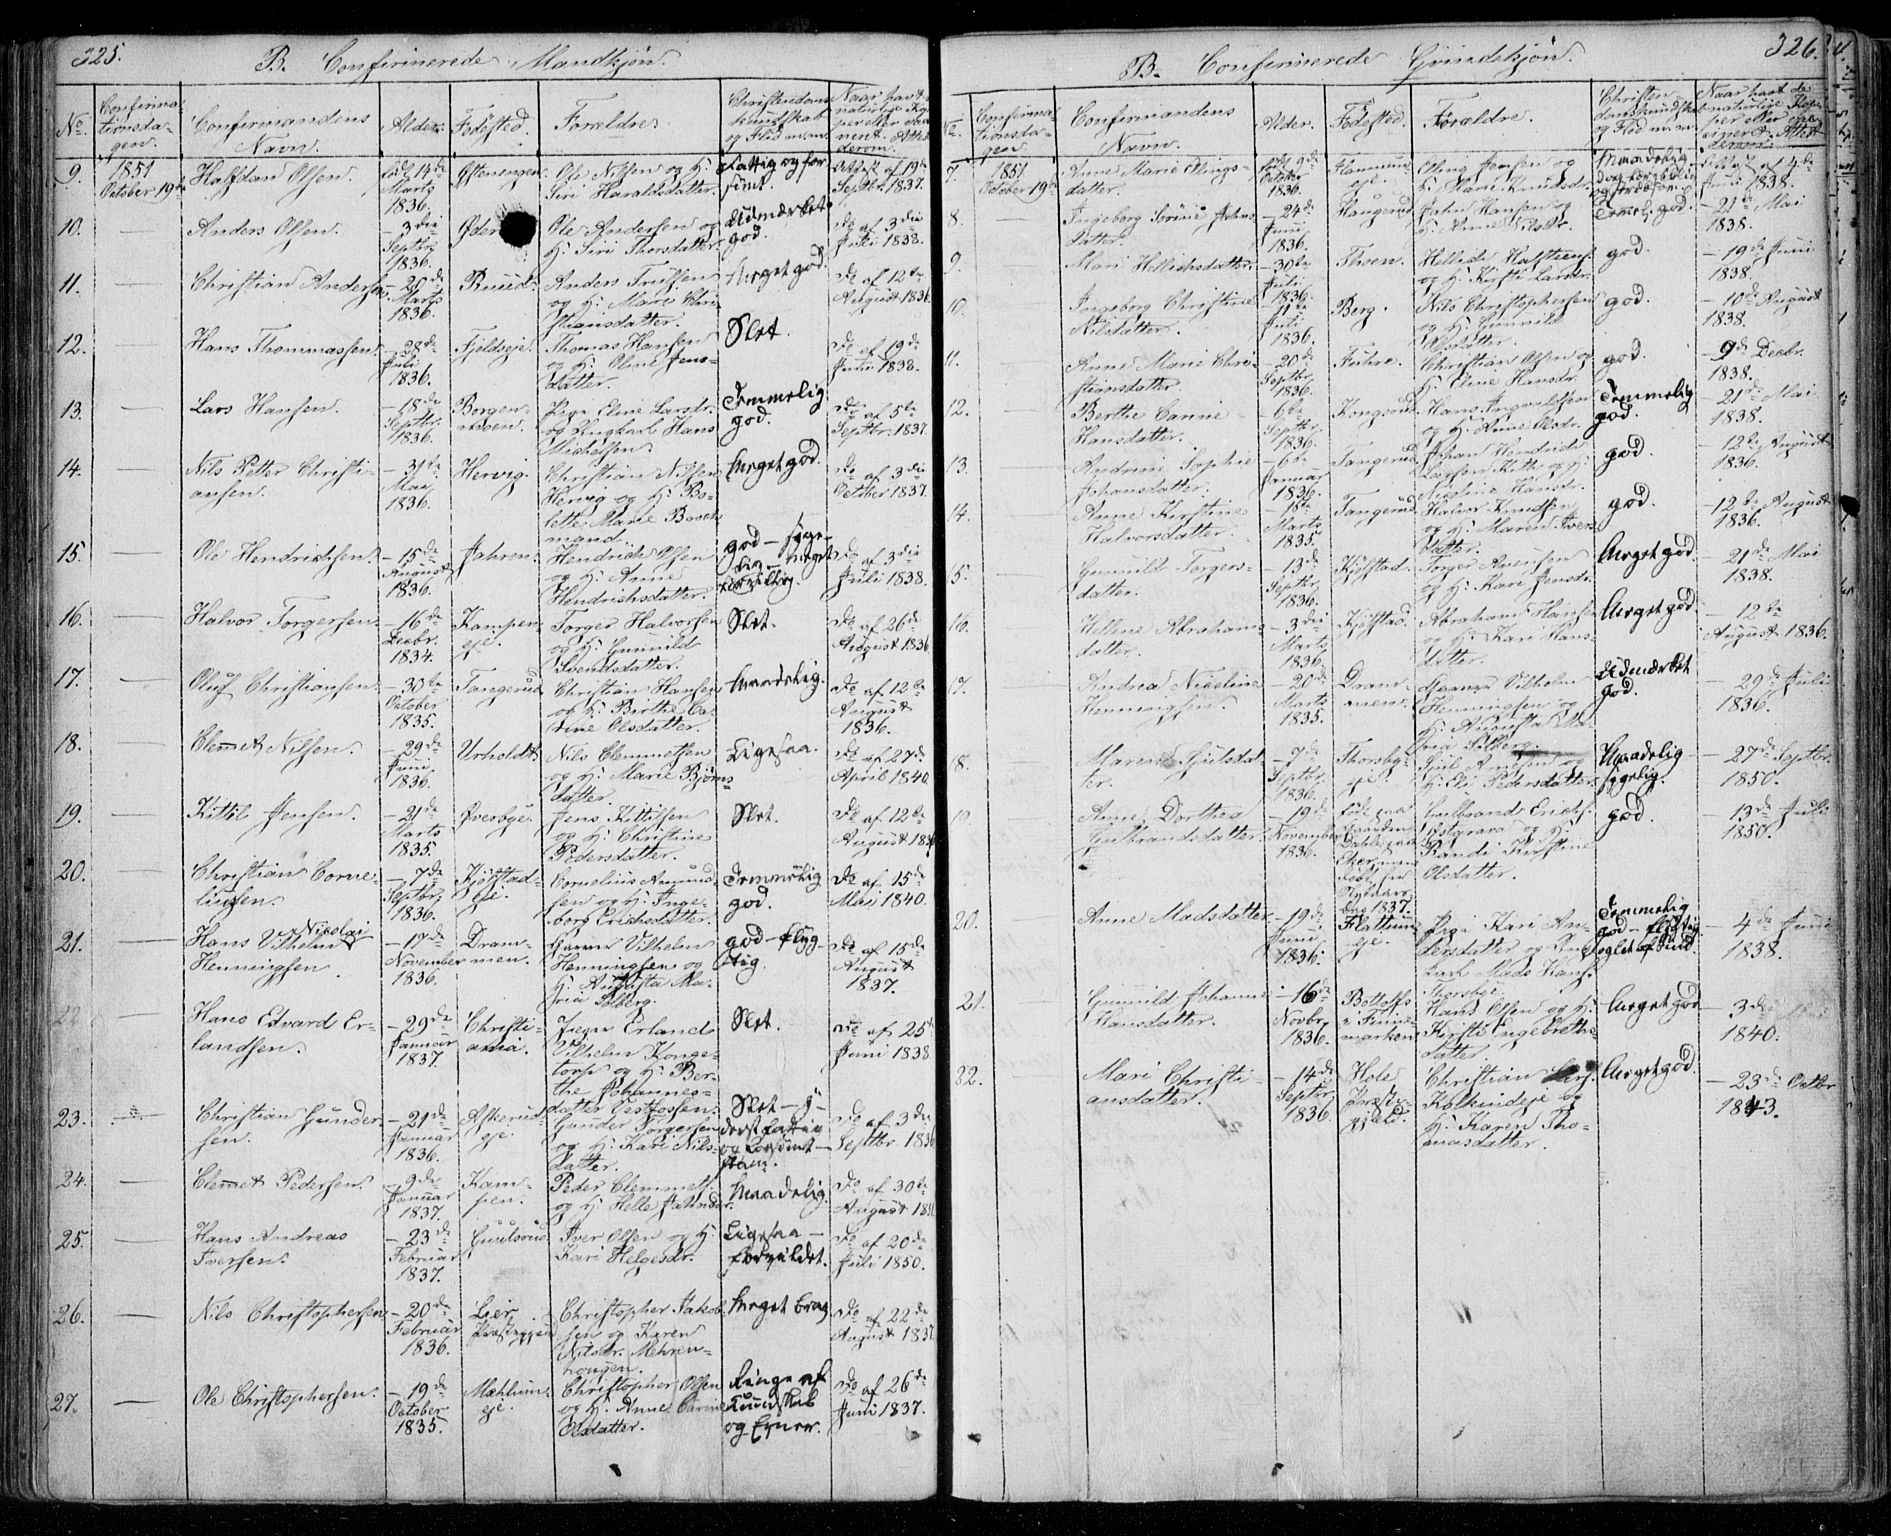 325.
B. Confirmerede Mandkjøn.
No.
Confirma-
tionsda-
gen.
Confirmandens
Navn.
Alder.
Fødested.
Forældre.
Christendoms
kundskab
og Flid m.m.
Naar havt
naturlige Kop-
per eller
derom.
9.
1851
October 19de
Halfdan Olsen.
fød 14de
Marts
1836.
Ole Nilsen og H:
Siri Haraldsdatter.
Fattig og for
Attest af 19de
Septbr. 1837.
10.
Anders Olsen.
- 3die
Septbr.
1836.
Ole Andersen og
H: Siri Thorsdatter.
Udmærket
god.
Do af 3die
Juli 1838.
11.
Christian Andersen
- 20de
Marts
1836.
Ruud.
Anders Trulsen
og H: Marie Chri-
stiansdatter.
Meget god.
Do af 12te
August 1836.
12.
Hans Thommassen.
- 28de
Juli
1836.
Fjeldseje.
Thomas Hansen
og H: Oline Jens-
datter.
Slet.
Do af 19de
Juni 1838.
13.
Lars Hansen.
- 18de
Septbr.
1836.
Borgen-
moen.
Pige Eline Larsdr.
og Ungkarl Hans
Michelsen.
Temmelig
god.
Do af 5te
Septbr. 1837.
14.
Nils Petter Christi-
ansen.
- 31te
Mai
1836.
Hervig.
Christian Nilsen
Hervig og H: Bo-
lette Marie Bosch-
mand.
Meget god.
Do af 3die
October 1837.
15.
Ole Hendrichsen.
- 15de
August
1836.
Jahren.
Hendrich Olsen
og H: Anne
Hendrichsdatter.
god - syge-
lig - meget
Do af 3die
Juli 1838.
16.
Halvor Torgersen
- 16de
Decbr.
1834.
Kampen-
eje.
Torger Halvorsen
og H: Gunnild
Svendsdatter.
Slet.
Do af 26de
August 1836
17.
Oluf Christiansen.
- 30te
October
1835.
Tangerud
Christian Hansen
og H: Birthe Ca-
trine Olsdatter.
Maadelig.
Do af 12te
August
1836.
18.
Clemmet Nilsen.
- 29de
Juni
1836.
Urholdt
Nils Clemmetsen
og H: Marie Bjørns-
datter.
Ligesaa.
Do af 27de
April 1840.
19.
Kittil Jensen.
- 21de
Marts
1835.
Øverbye.
Jens Kittilsen
og H: Christine
Pedersdatter.
Slet.
Do af 12te
August 1836
20.
Christian Corne-
liusen.
- 7de
Septbr.
1836.
Kjølstad-
eje.
Cornelius Amund-
sen og H: Inge-
borg Erichsdatter.
Temmelig
god.
Do af 15de
Mai 1840.
21.
Hans Vilhelm Nicolai
Henningsen.
- 17de
November
1836.
Dram-
men.
Vilhelm
Henningsen og
H: Augusta Ma-
ria Solberg.
god - flyg-
tig.
Do af 15de
August
1837.
22
Hans Edvard Er-
landsen.
- 29de
Januar
1837.
Christi-
ania.
Erland
Vilhelm Konge-
torp og H: Ber-
the Johannes-
datter Vestfossen.
Slet.
Do af 25de
Juni 1838
23.
Christian Gunder-
sen.
- 21de
Januar
1836.
Askerud-
eje.
Gunder Torgersen
og H: Kari Nils-
datter.
Slet - y-
derst fattig
og forsømt -
Do af 3die
Septbr. 1836
24.
Clemmet Pedersen.
- 9de
Januar
1837.
Kam-
pen.
Peder Clemmets.
og H: Helle Jahnsdr.
Maadelig.
Do af 30te
August
25.
Hans Andreas
Iversen.
- 23de
Februar
1837.
Guulsrud
Iver Olsen og H:
Kari Helgesdr.
Ligesaa -
Do af 20de
Juli 1850.
26.
Nils Christophersen
- 20de
Februar
1836.
Lier
Præstegjeld
Christopher Jakob-
sen og Karen
Nilsdr. Mehren-
hougen.
Meget brav
Do af 22de
August 1837.
27.
Ole Christophersen.
- 19de
October
1835.
Mæhlum-
eje.
Christopher Olsen
og H: Anne Carine
Olsdatter.
Ringe af
Kundskab
og Evner.
Do af 26de
Juni 1837.
326.
B. Confirmerede Qvindekjøn.
No.
Confirma-
tionsda-
gen.
Confirmandens
Navn.
Alder.
Fødested.
Forældre.
Christen-
domskundskab
og Flid m.m.
Naar havt de
naturlige Kop-
per eller
vaccineret. Attest
derom.
7.
1851
October 19de
Anne Marie
datter.
fød 9de
October
1836.
Jensen og
H: Marie Knudsdr.
Maadelig
Attest af 4de
Juni 1838.
8.
Ingeborg Sørine Jahns-
datter.
- 24de
Juni
1836.
Haugerud
Jahn Hansen og
H: Anne Nilsdr.
Temmel. god.
- 21de Mai
1838.
9.
Mari Hellichsdatter.
- 30te
Juli
1836.
Thoen.
og H: Kirsti Larsdr.
god.
- 19de Juni
1838.
10.
Ingeborg Christine
Nilsdatter.
Juli
1836.
Berg.
Nils Christophersen
og H: Gunnild
Olsdatter.
god.
- 10de August
1838.
11.
Anne Marie Chri-
stiansdatter.
- 20de
Septbr.
1836.
Fuhre.
Christian Olsen og
H: Eline Hansdr.
god.
- 9de Decbr.
1838.
12.
Berthe Carine
Hansdatter.
- 6te
Septbr.
1836.
Kongsrud
Hans Ingvaldsen
og H: Anne Olsdr.
Temmelig
god.
- 21de Mai
1838.
13.
Andrine Sophie
Johansdatter.
- 6te
Januar
1836.
Tangerud
Johan Hendrich
Larsen og H:
Nicoline Hansdr.
god.
- 12te August
1836.
14.
Anne Kirstine
Halvorsdatter.
- 18de
Marts
1835.
Tangerud
Halvor Knudsen
og H: Maren Ivers-
datter.
god.
- 12te August
1836.
15.
Gunnild Torgers-
datter.
- 13de
Septbr.
1836.
Kjølstad.
Torger
og H: Kari Jensdr.
Meget god.
- 21de Mai
1838.
16.
Helene Abrahams-
datter.
- 3die
Marts
1836.
Kjølstad.
Abraham Hansen
og H: Kari Hans-
datter.
Meget god.
- 12te
August 1836.
17.
Andrea Nicoline
Henningsen.
- 20de
Marts
1835.
Dram-
men.
Vilhelm
Henningsen og
H: Augusta Ma-
ria Solberg.
Udmærket
god.
- 29de Juli
1836.
18.
Maren Hjulsdat-
ter.
- 7de
Septbr.
1836.
Thorsby-
eje.
Hjul Amdsen og
H: Eli Pedersdatter
Maadelig
sygelig.
- 27de Septbr.
1850.
19.
Anne Dorthea
Gulbrandsdatter.
- 19de
November
1836.
Født paa
Gaarden
Dahle paa
Eker men
døbt
1837.
Gulbrand Erichs.
og H:
Randi Kirstine
Olsdatter.
god.
- 13de Juli
1850.
20.
Anne Madsdatter
- 19de
Juni
1836.
Flattum-
eje.
Pige Kari An-
dersdatter og Ung-
karl Mads Hans.
Thorsbye.
Temmelig
god - flittig
- 4de Juni
1838.
21.
Gunnild Johanne
Hansdatter.
- 16de
Novbr.
1836.
Bottolfs
i Finne-
marken
Hans Olsen og H:
Kirsti Engebrethe-
datter
Meget god
- 3de
1840.
22.
Mari Christi-
ansdatter.
- 14de
Septbr.
1836.
Hole
Præste-
gjeld.
Christian Lars.
og
H: Karen Tho-
masdatter.
Meget god.
- 23de Octbr
1843.